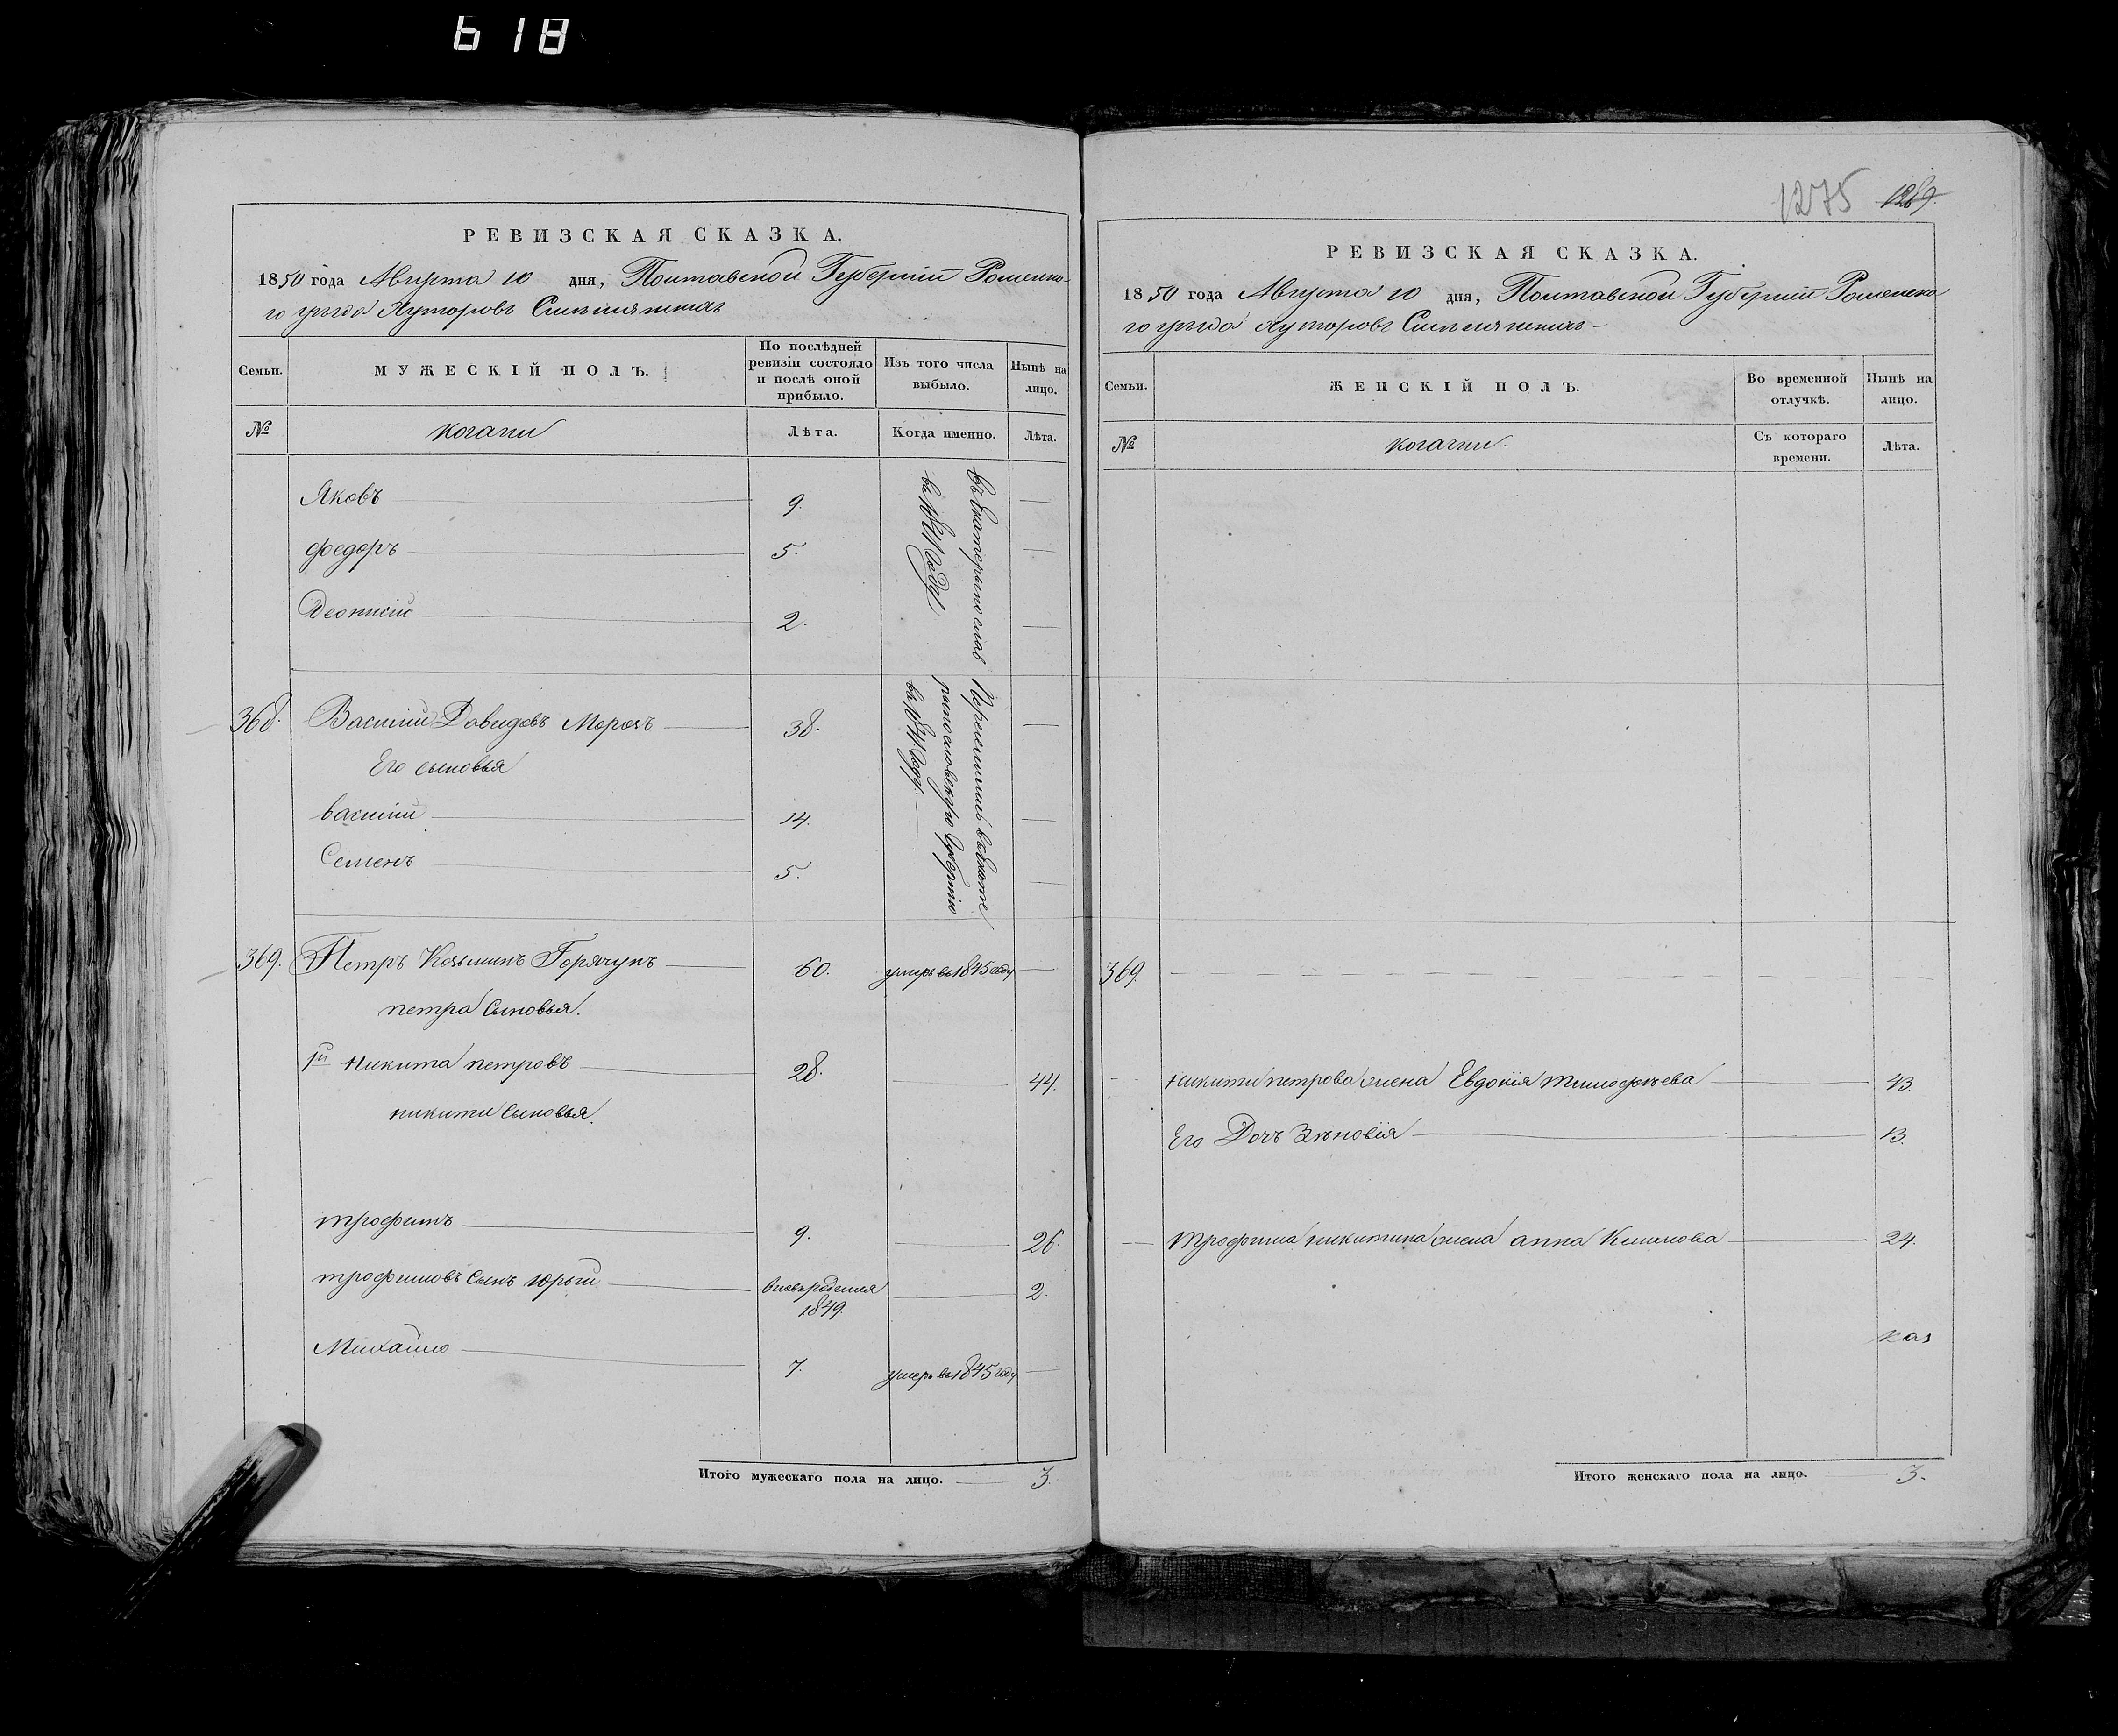 618
РЕВИЗСКАЯ СКАЗКА.
1850 года Августа 10 дня, Полтавской Губернии Роменска-
го уезда Хуторовъ
Семьи.
МУЖЕСКІЙ ПОЛЪ.
По послѣдней ревизіи состояло и послѣ оной прибыло.
Изъ того числа выбыло.
Нынѣ на лицо.
№
козаки
Лѣта.
Когда именно.
Лѣта.
Яковъ 9.
Федоръ 5.
Деонисій 2.
въ Екатеринослав
въ 1841 Году
368. Василий Давидовъ Морозъ 38.
Его сыновья
василій 14.
Семенъ 5.
Переселились въ Екате
ринославскую Губернію
въ 1844 Году.
369. Петръ Козьминъ Горячунъ 60. умеръ въ 1845 году
петра Сыновья.
1й Никита петровъ 28. 44.
никиты Сыновья.
трофимъ 9. 26.
трофимовъ Сынъ Юрій 1849. 2.
Михайло 7. умеръ въ 1845 году
Итого мужескаго пола на лицо. 3.
1275 1269.
РЕВИЗСКАЯ СКАЗКА.
1850 года Августа 10 дня, Полтавской Губернии Роменска
го уезда хуторовъ
Семьи.
ЖЕНСКІЙ ПОЛЪ.
Во временной отлучкѣ.
Нынѣ на лицо.
№
козачки
Съ котораго времени.
Лѣта.
369.
никиты петрова жена Евдокія тимофѣева 43.
Его Дочь Зѣновія 13.
трофима никитина жена анна Климова 24.
каз
Итого женскаго пола на лицо. 3.